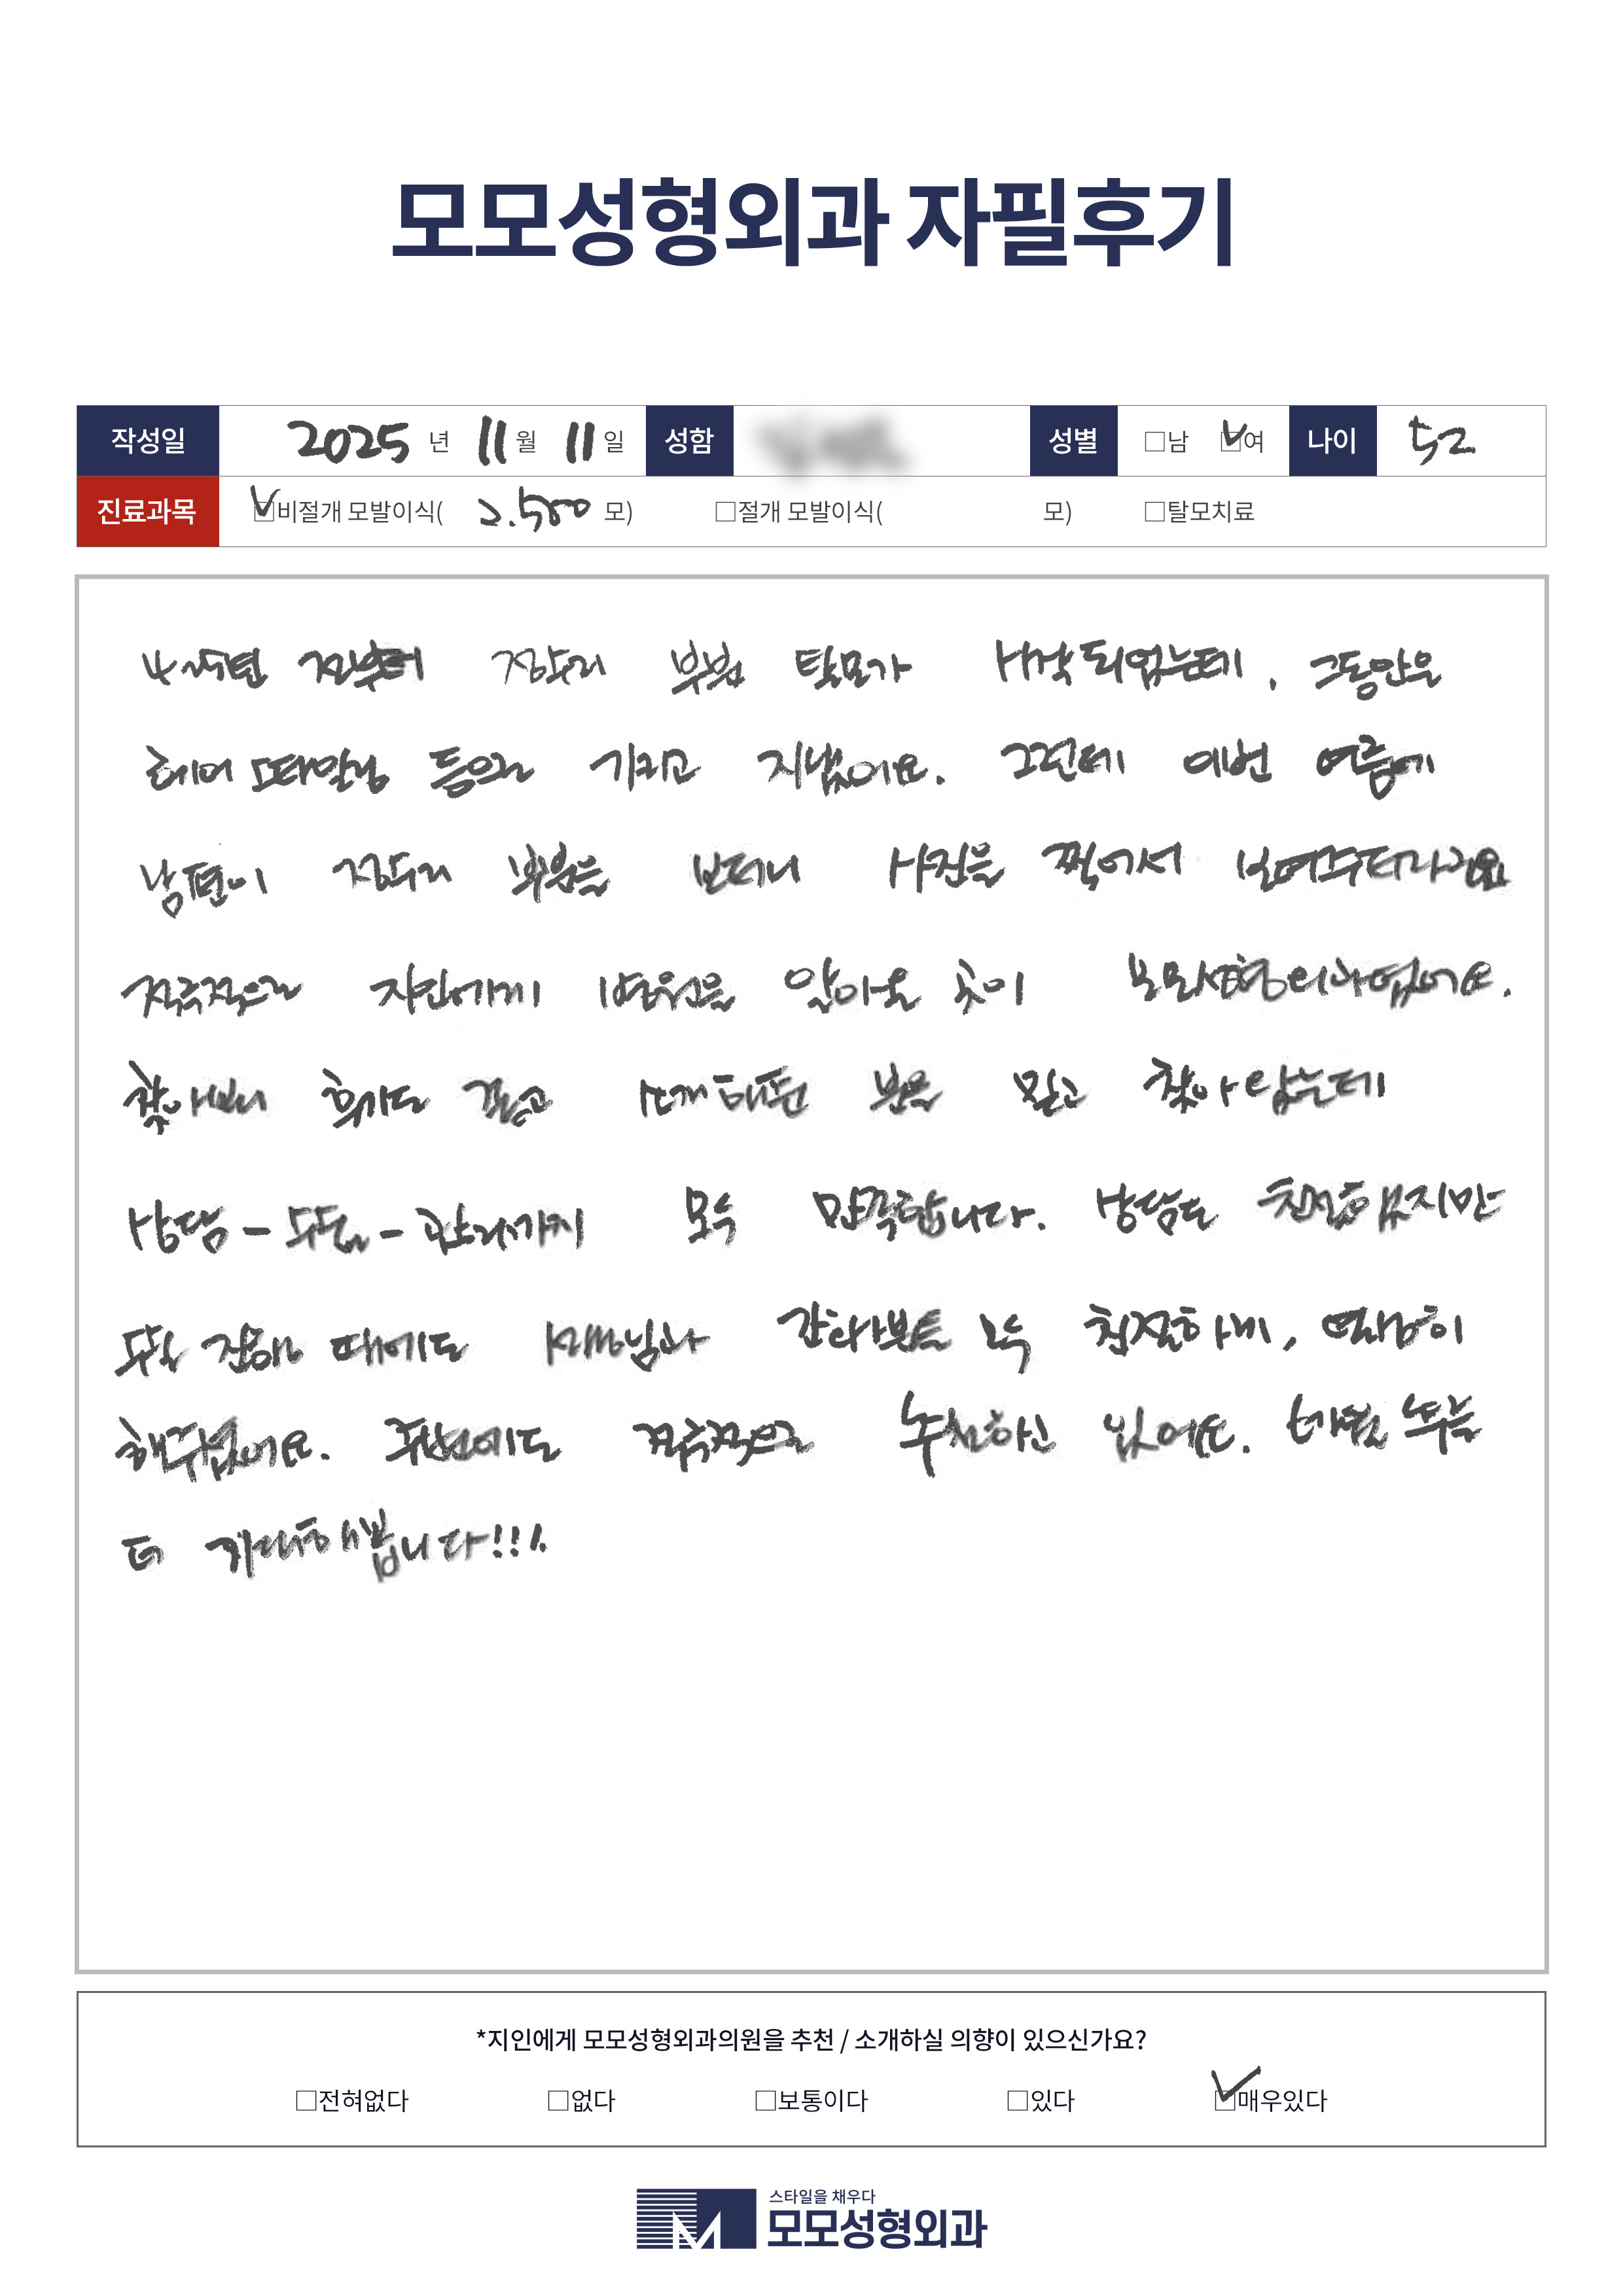 모모성형외과 자필후기
작성일 2025 년 11 월 11 일 성함 성별 □남 ☑여 나이 52
진료과목 ☑비절개 모발이식( 2.500 모) □절개 모발이식( 모) □탈모치료
4~5년 전부터 정수리 부분 탈모가 시작되었는데, 그동안은
헤어 또아말림 등으로 가리고 지냈어요. 그런데 이번 여름에
남편이 정수리 부분을 보더니 사진을 찍어서 보여주더라고요
적극적으로 자신에게 병원을 알아본 곳이 모모성형외과였어요.
찾아보니 후기도 좋고 소개해준 분을 믿고 찾아 왔는데
상담 - 수술 - 관리까지 모두 만족합니다. 상담도 친절했지만
수술 진행 때에도 선생님과 간호사분들 모두 친절하게, 열심히
해주셨어요. 주변에도 적극적으로 추천하고 있어요. 개월 수록
더 기대해 봅니다!!!
*지인에게 모모성형외과의원을 추천 / 소개하실 의향이 있으신가요?
□전혀없다 □없다 □보통이다 □있다 ☑매우있다
스타일을 채우다
모모성형외과